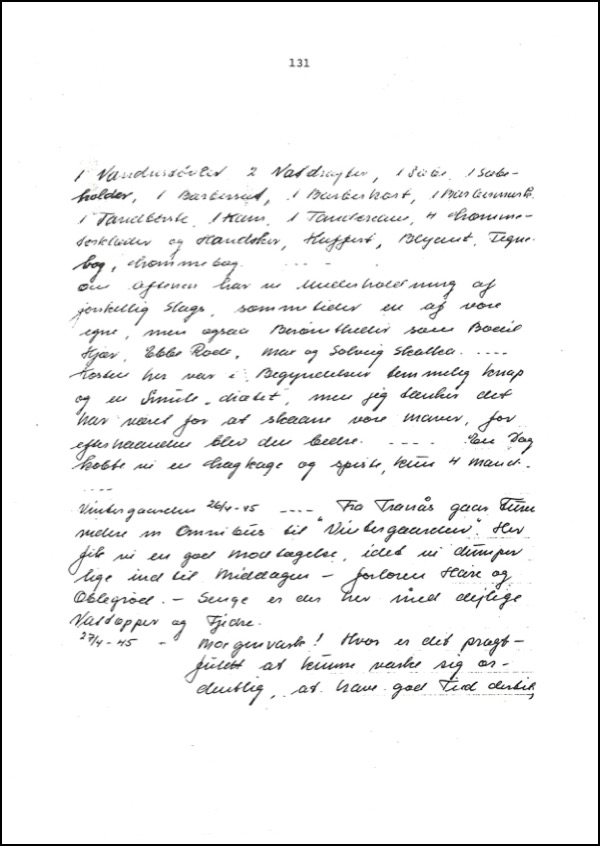 131
1 Vandursövlet 2 Natdragter, 1 Sæbe, 1 Sæbe-
holder, 1 Barbersæt, 1 Barberkost, 1
1 Tandbørste, 1 Kam, 1 Tandcream, 4 Lomme-
tørklæder og Handsker, Kuffert, Blyant, Tegne-
bog, Lommebog. - - - -
Om Aftenen har vi Underholdning af
forskellig Slags, sommetider en af vore
egne, men ogsaa Berømtheder som Bodil
Kjær, Ebbe Rode, Moe og Solveig - - - -
Kosten her var i Begyndelsen temmelig knap
og en Smule "diætet", men jeg tænker det
har været for at skaane vore maver, for
efterhaanden blev den bedre. - - - - En Dag
købte vi en Lagkage og spiste, kun 4 mand.
- - - -
Vintergaarden 26/4-45 - - - - Fra Tranås gaar Turen
videre m Omnibus til "Vintergaarden". Her
fik vi en god modtagelse, idet vi dumper
lige ind til Middagen - forloren Hare og
Æblegrød. - Senge er der her med dejlige
Vattæpper og Fjedre.
27/4-45 - Morgenvask! Hvor er det pragt-
fuldt at kunne vaske sig or-
dentlig, at have god Tid dertil,